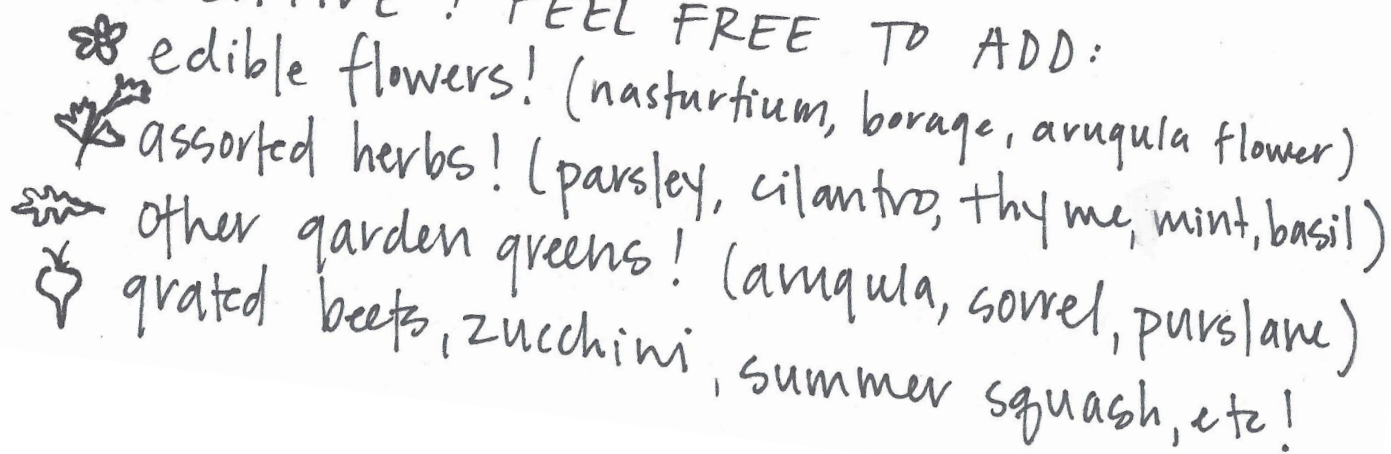 ! FEEL FREE TO ADD:
edible flowers! (nasturtium, borage, arugula flower)
assorted herbs! (parsley, cilantro, thyme, mint, basil)
other garden greens! (arugula, sorrel, purslane)
grated beets, zucchini, summer squash, etc!